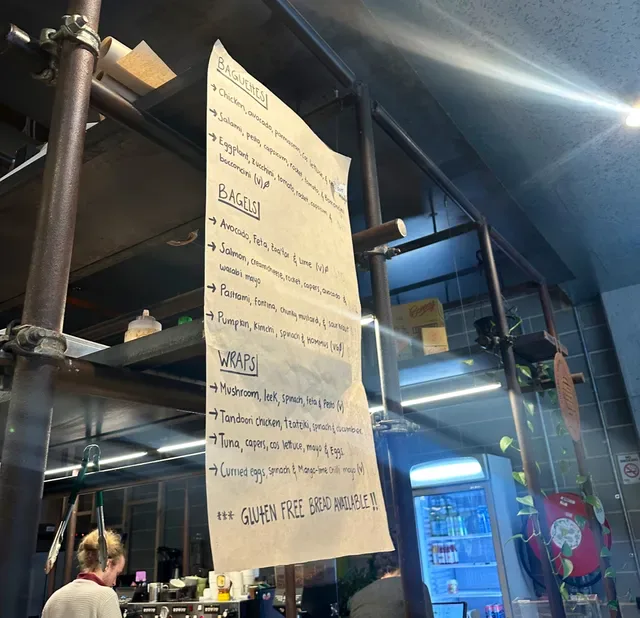 BAGUETTES
→ Chicken, avocado, parmesan, cos lettuce, &
→ Salami, pesto, capsicum, rocket, tomato, & bocconcini
→ Eggplant, zucchini, tomato, rocket, capsicum &
bocconcini (v)
BAGELS
→ Avocado, Feta, Zaatar & Lime (v)
→ Salmon, creamcheese, rocket, capers, avocado &
wasabi mayo
→ Pastrami, fontina, chunky mustard, & sourkraut
→ Pumpkin, kimchi, spinach & hommus
WRAPS
→ Mushroom, leek, spinach, feta & Pesto (v)
→ Tandoori chicken, tzatziki, spinach & cucumber
→ Tuna, capers, cos lettuce, mayo & Eggs
→ Curried eggs, spinach & Mango-lime chilli mayo (v)
*** GLUTEN FREE BREAD AVAILABLE !!